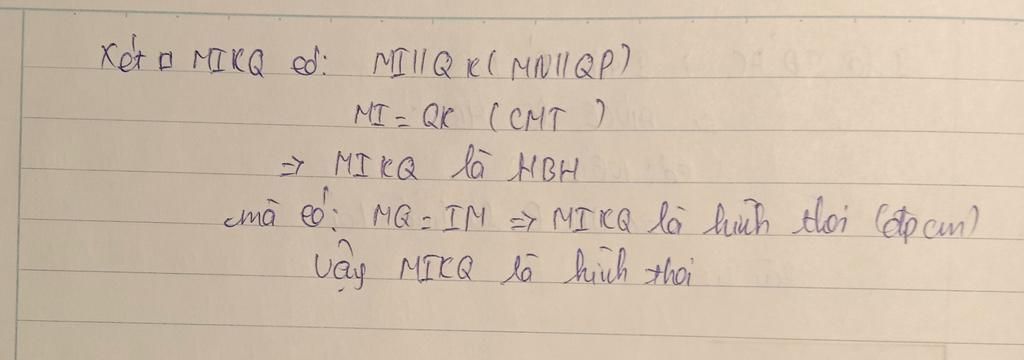 Xét □ MIKQ có: MI//QK (MN//QP)
MI = QK (CMT)
=> MIKQ là HBH
mà có: MQ = IM => MIKQ là hình thoi (đpcm)
Vậy MIKQ là hình thoi